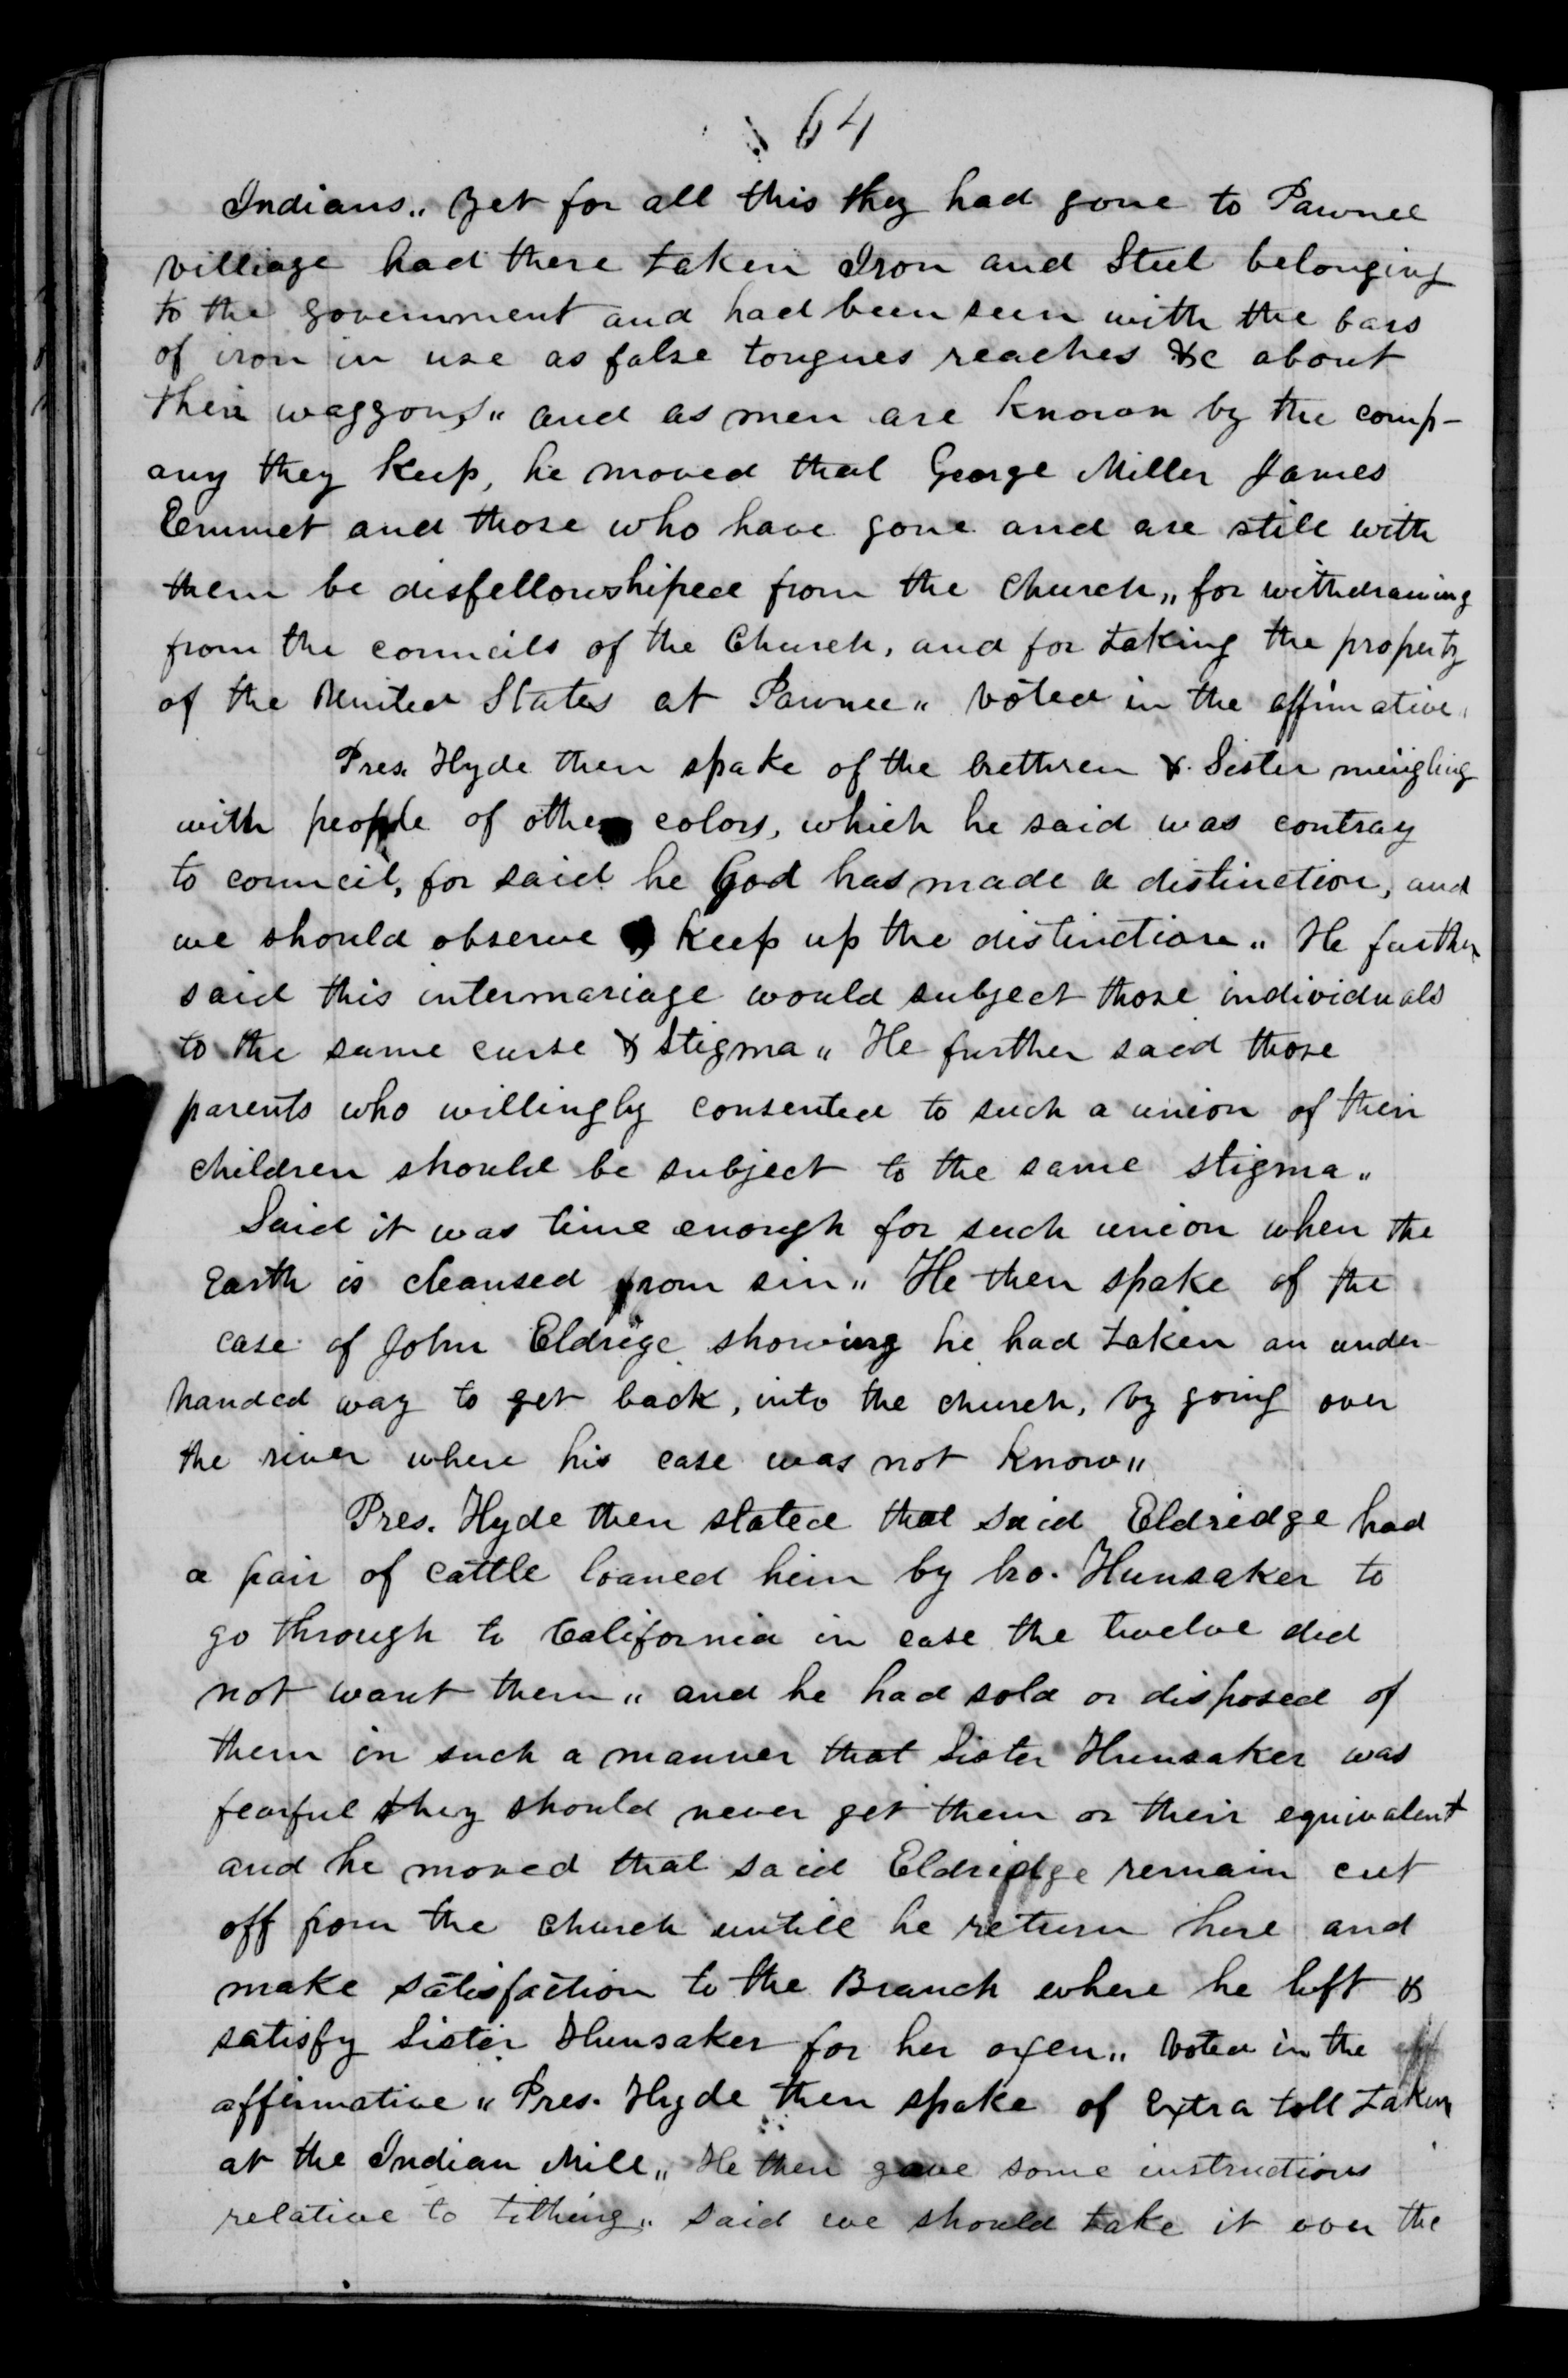 64
Indians„ yet for all this they had gone to Pawnee
villiage had there taken Iron and Steel belonging
to the government and had been seen with the bars
of iron in use as false tongues reaches &c about
their waggons„ and as men are known by the comp-
any they keep, he moved that George Miller James
Emmet and those who have gone and are still with
them be disfellowshiped from the Church„ for withdrawing
from the councils of the Church, and for taking the property
of the United States at Pawnee„ voted in the affirmative.
Pres. Hyde then spake of the brethren & Sister mingling
with people of other colors, which he said was contray
to council, for said he God has made a distinction, and
we should observe & keep up the distinction„ He further
said this intermariage would subject those individuals
to the same curse & stigma„ He further said those
parents who willingly consented to such a union of their
children should be subject to the same stigma„
Said it was time enough for such union when the
Earth is cleansed from sin„ He then spake of the
case of John Eldrige showing he had taken an under-
handed way to get back, into the church, by going over
the river where his case was not know„
Pres. Hyde then stated that said Eldredge had
a pair of cattle loaned him by bro. Hunsaker to
go through to California in case the twelve did
not want them„ and he had sold or disposed of
them in such a manner that Sister Hunsaker was
fearful they should never get them or their equivalent
and he moved that said Eldridge remain cut
off from the church untill he return here and
make satisfaction to the Branch where he left &
satisfy Sister Hunsaker for her oxen„ voted in the
affirmative„ Pres. Hyde then spake of extra toll taken
at the Indian Mill„ He then gave some instructions
relative to tithing„ said we should take it over the